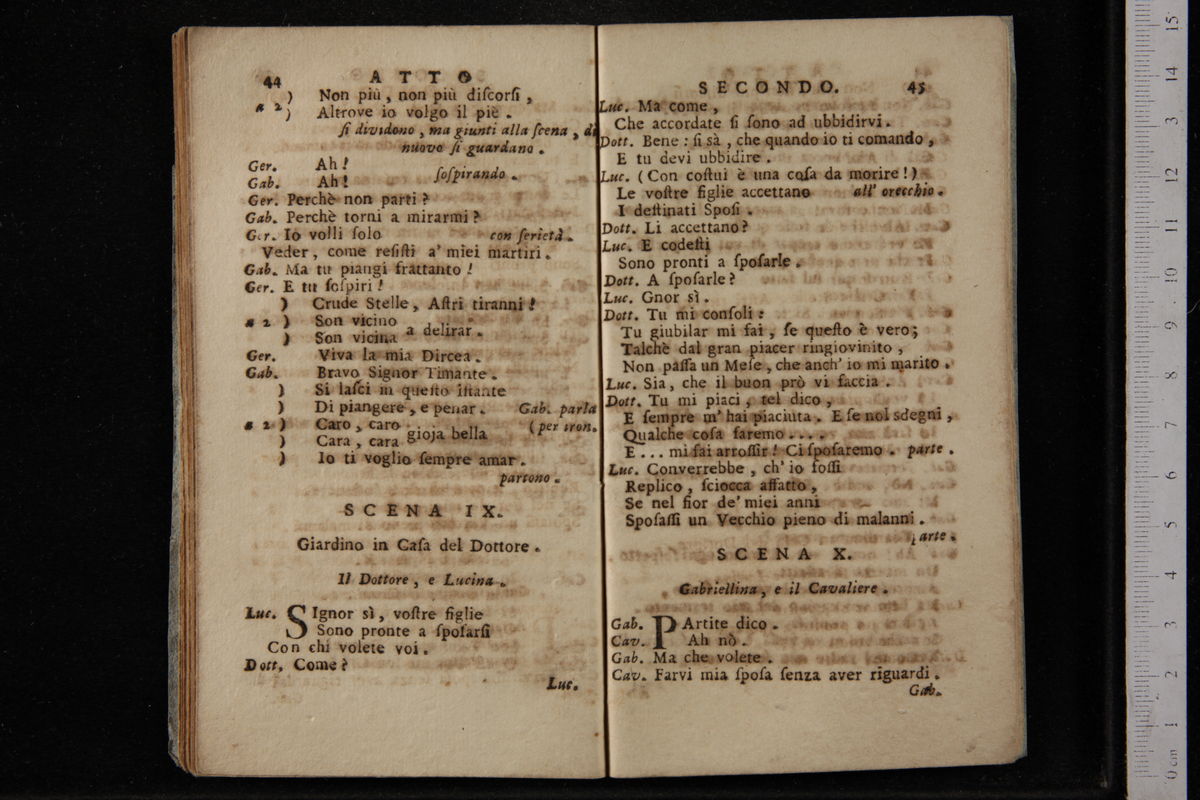 44 ATTO
) Non più, non più diſcorſi,
a 2 ) Altrove io volgo il piè.
ſi dividono, ma giunti alla ſcena, di
nuovo ſi guardano.
Ger. Ah!
ſoſpirando.
Gab. Ah!
Ger. Perchè non parti?
Gab. Perchè torni a mirarmi?
Ger. Io volli ſolo con ſerietà.
Veder, come reſiſti a' miei martiri.
Gab. Ma tu piangi frattanto!
Ger. E tu ſoſpiri!
) Crude Stelle, Aſtri tiranni!
a 2 ) Son vicino
a delirar.
) Son vicina
Ger. Viva la mia Dircea.
Gab. Bravo Signor Timante.
) Si laſci in queſto iſtante
) Di piangere, e penar. Gab. parla
a 2 ) Caro, caro (per tron.
gioja bella
) Cara, cara
) Io ti voglio ſempre amar.
partono.
SCENA IX.
Giardino in Caſa del Dottore.
Il Dottore, e Lucina.
Luc. SIgnor sì, voſtre figlie
Sono pronte a ſpoſarſi
Con chi volete voi.
Dott. Come?
Luc.
SECONDO. 45
Luc. Ma come,
Che accordate ſi ſono ad ubbidirvi.
Dott. Bene: ſi sà, che quando io ti comando,
E tu devi ubbidire.
Luc. (Con coſtui è una coſa da morire!)
Le voſtre figlie accettano all' orecchio.
I deſtinati Spoſi.
Dott. Li accettano?
Luc. E codeſti
Sono pronti a ſpoſarle.
Dott. A ſpoſarle?
Luc. Gnor sì.
Dott. Tu mi conſoli:
Tu giubilar mi fai, ſe queſto è vero;
Talchè dal gran piacer ringiovinito,
Non paſſa un Meſe, che anch' io mi marito.
Luc. Sia, che il buon prò vi faccia.
Dott. Tu mi piaci, tel dico,
E ſempre m' hai piaciuta. E ſe nol sdegni,
Qualche coſa faremo....
E... mi fai arroſſir! Ci ſpoſaremo. parte.
Luc. Converrebbe, ch' io foſſi
Replico, ſciocca affatto,
Se nel fior de' miei anni
Spoſaſſi un Vecchio pieno di malanni.
parte.
SCENA X.
Gabriellina, e il Cavaliere.
Gab. PArtite dico.
Cav. Ah nò.
Gab. Ma che volete.
Cav. Farvi mia ſpoſa ſenza aver riguardi.
Gab.
0 cm 1 2 3 4 5 6 7 8 9 10 11 12 13 14 15